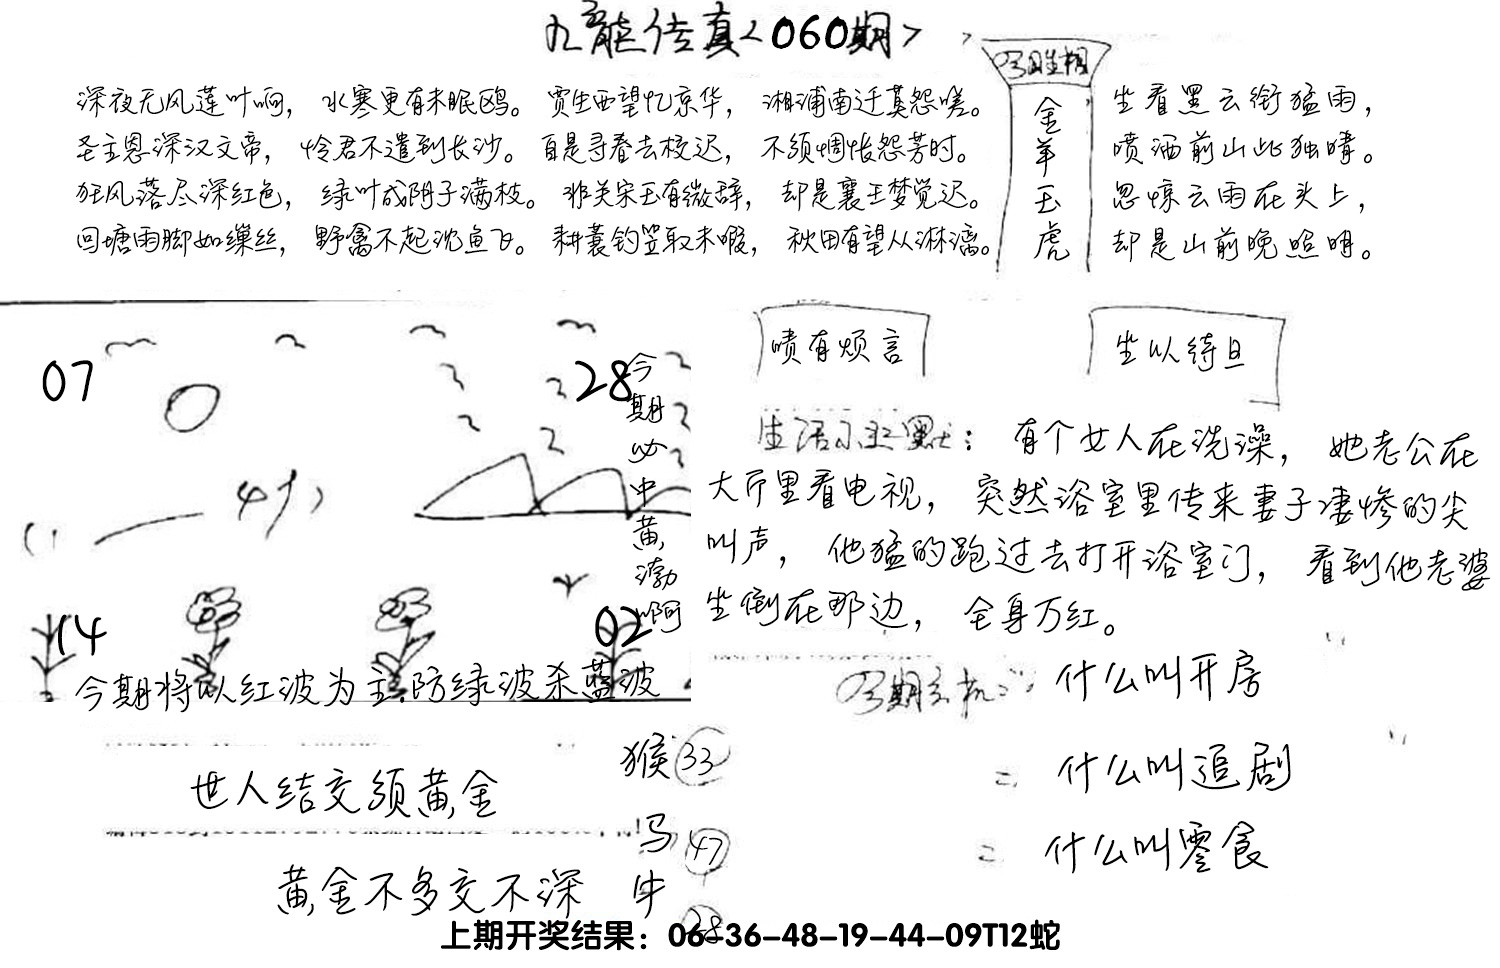 九龍传真<060期>
深夜无风莲叶响，水寒更有未眠鸥。贾生西望忆京华，湘浦南迁莫怨嗟。
圣主恩深汉文帝，怜君不遣到长沙。自是寻春去校迟，不须惆怅怨芳时。
狂风落尽深红色，绿叶成阴子满枝。非关宋玉有微辞，却是襄王梦觉迟。
回塘雨脚如缫丝，野禽不起沈鱼飞。耕蓑钓笠取未暇，秋田有望从淋漓。
今日生相
金羊玉虎
坐看黑云衔猛雨，
喷洒前山此独晴。
忽惊云雨在头上，
却是山前晚照明。
07
28
14
02
今期必中黄渤啊
今期将以红波为主防绿波杀蓝波
啧有烦言
坐以待旦
生活小幽默：有个女人在洗澡，她老公在
大厅里看电视，突然浴室里传来妻子凄惨的尖
叫声，他猛的跑过去打开浴室门，看到他老婆
坐倒在那边，全身万红。
今期玄机：什么叫开房
什么叫追剧
什么叫零食
世人结交须黄金
黄金不多交不深
猴 33
马 47
牛 28
上期开奖结果：06-36-48-19-44-09T12蛇